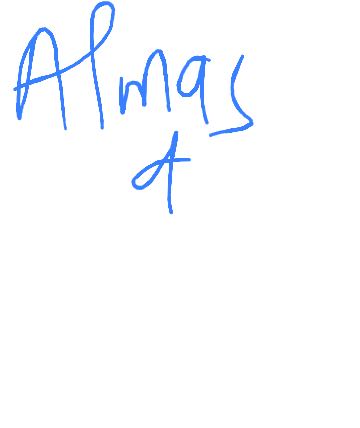 Almas
4